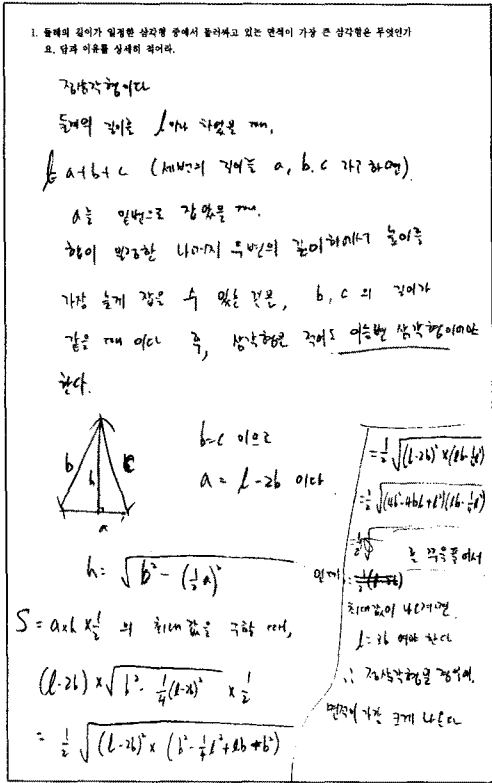 1. 둘레의 길이가 일정한 삼각형 중에서 둘러싸고 있는 면적이 가장 큰 삼각형은 무엇인가
요. 답과 이유를 상세히 적어라.
정삼각형이다
둘레의 길이를 l 이라 하였을 때,
l= a+b+c (세변의 길이를 a, b, c 라고 하면)
a를 밑변으로 잡았을 때,
합이 일정한 나머지 두변의 길이하에서 높이를
가장 높게 잡을 수 있는 것은, b, c 의 길이가
같을 때 이다 즉, 삼각형은 적어도 이등변 삼각형이어야
한다.
b
h
c
a
b=c 이므로
a = l-2b 이다
h = √(b² - (½a)²)
S = a×h×½ 의 최대값을 구할 때,
(l-2b) × √(b² - ¼(l-2b)²) × ½
= ½ √((l-2b)² × (b² - ¼l² + lb - b²))
= ½ √((l-2b)² × (lb - ¼l²))
= ½ √((4b² - 4bl + l²)(lb - ¼l²))
를
최대값이 나오려면
l = 3b 여야 한다
∴ 정삼각형일 경우에,
면적이 가장 크게 나온다